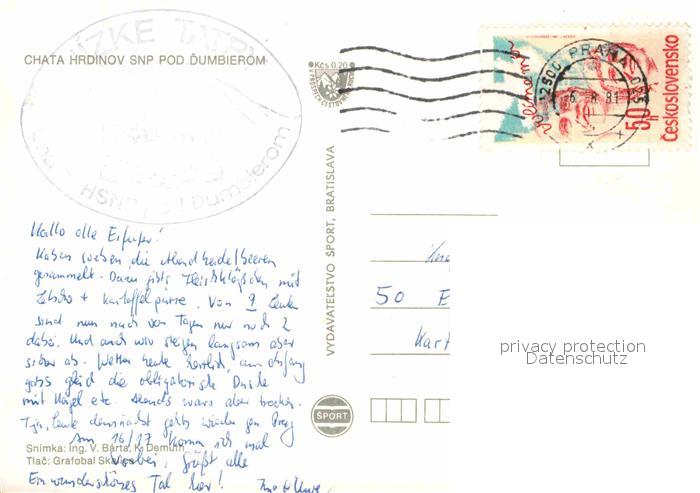 NÍZKE TATRY
CHATA HRDINOV SNP POD ĎUMBIEROM
HSNP pod Ďumbierom
Kčs 0,20
PRAHA
6.8.81
50h
Československo
VYDAVATEĽSTVO ŠPORT, BRATISLAVA
Hallo alle Erfurter!
Haben soeben die Abendheidelbeeren
gesammelt. Dazu gibts Fleischklößchen mit
+ Kartoffelpürre. Von 9 Leuten
sind nun nach von Tagen nur noch 2
dabei. Und auch wir steigen langsam aber
sicher ab. Wetter heute herrlich, am Anfang
gabs gleich die obligatorische Dusche
mit Hagel etc. Abends wars aber trocken.
Tja, Leute demnächst gehts wieder gen Prag
Am 16/17 komm ich mal
vorbei, Grüßt alle
Ein wunderschönes Tal hier!
50 E
Kart
Snímka: Ing. V. Bárta, K. Demuth
Tlač: Grafobal Skalica
ŠPORT
privacy protection
Datenschutz